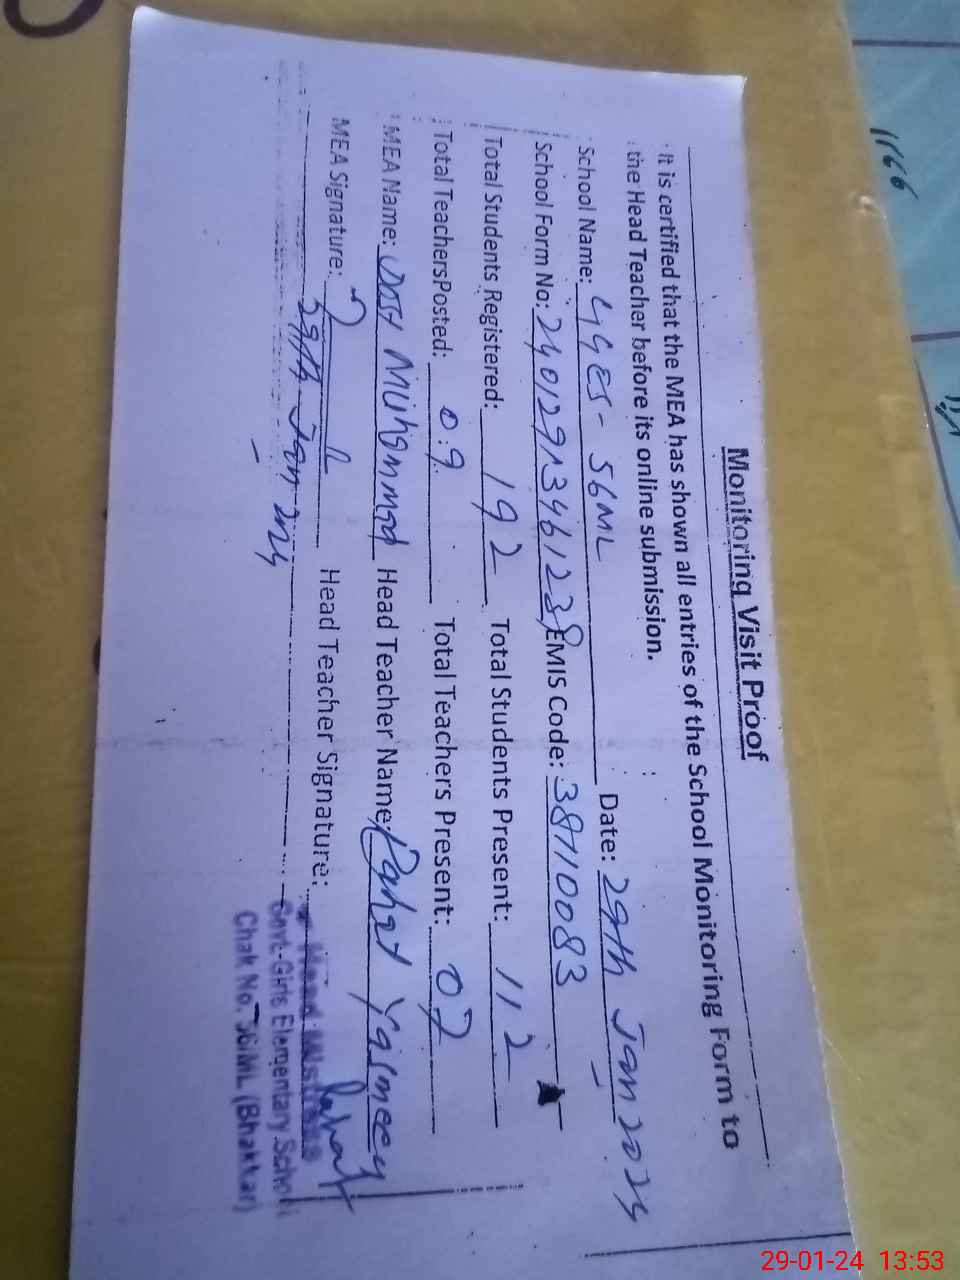 Monitoring Visit Proof
It is certified that the MEA has shown all entries of the School Monitoring Form to
the Head Teacher before its online submission.
School Name: GGES- 56ML Date: 29th Jan 2024
School Form No: EMIS Code: 38110083
Total Students Registered: 192 Total Students Present: 112
Total TeachersPosted: 09 Total Teachers Present: 07
MEA Name: Dost Muhammad Head Teacher Name: Rahat Yasmeen
MEA Signature: Head Teacher Signature: Rahat
29th Jan 2024
Head Mistress
Govt. Girls Elementary School
Chak No. 56/ML (Bhakkar)
1166
29-01-24 13:53